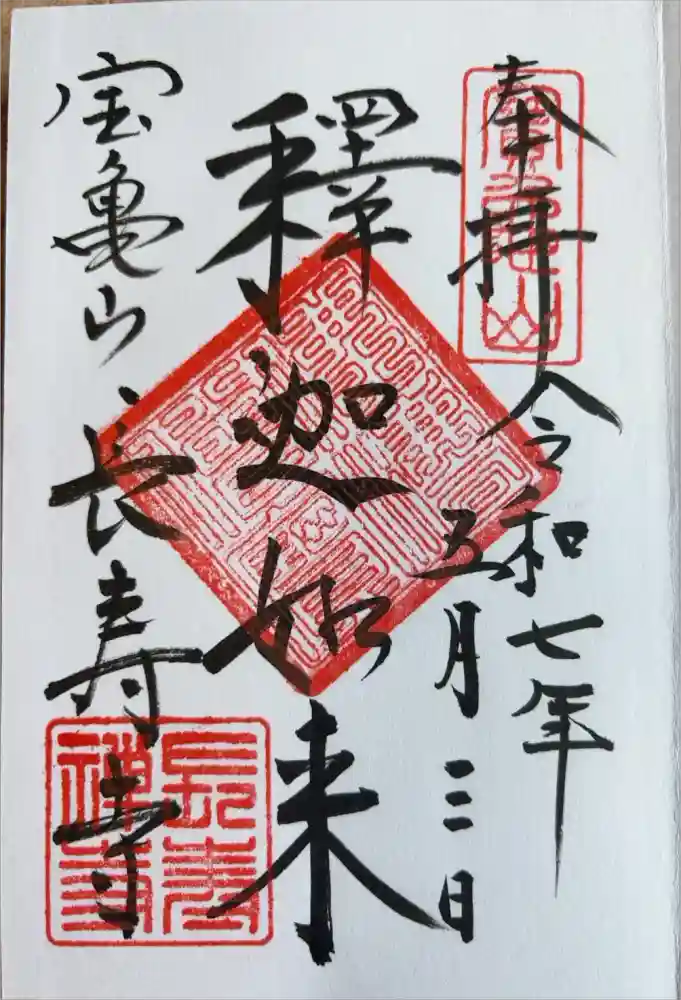 奉拝
令和七年
五月三日
釋迦如来
宝亀山長寿寺
寶亀山
長寿禅寺